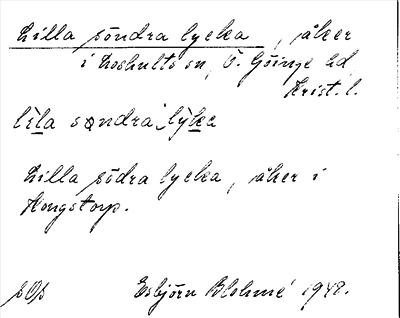 Lilla söndra lycka, åker
i Loshults sn, Ö. Göinge hd
Krist. l.
lila søndra lyka
Lilla södra lycka, åker i
Kongstorp.
Esbjörn Blohmé 1948.